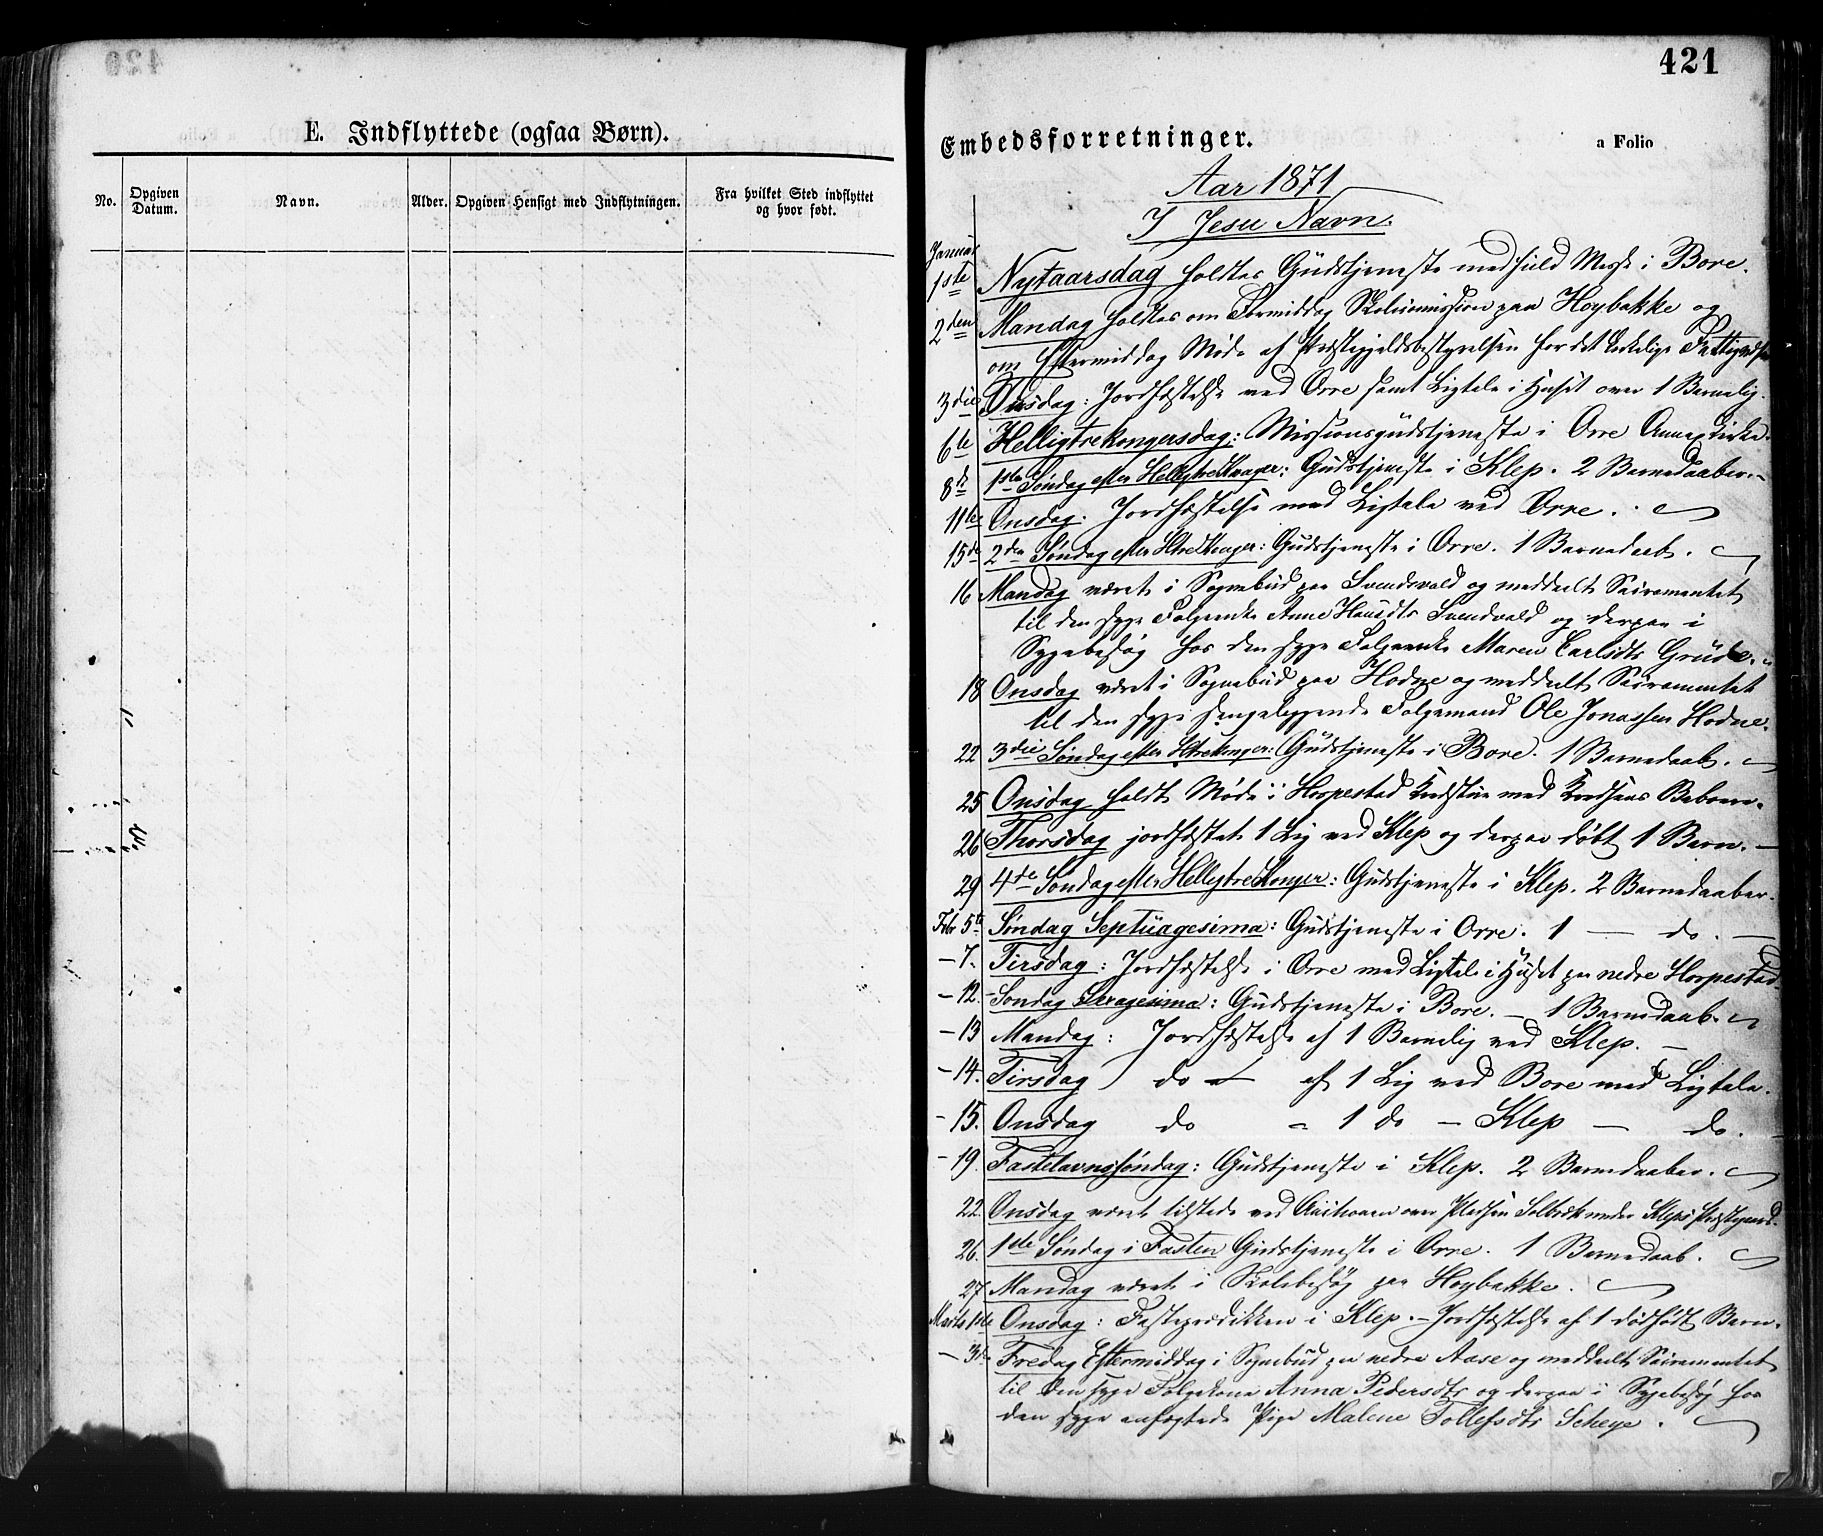 420
E. Indflyttede (ogsaa Børn).
No.
Opgiven Datum.
Navn.
Alder.
Opgiven Hensigt med Indflytningen.
Fra hvilket Sted indflyttet og hvor født.
421
Embedsforretninger.
a Folio
Aar 1871
I Jesu Navn.
Januar
1ste Nytaarsdag holdtes Gudstjeneste med fuld Messe i Bore.
2den Mandag holdtes om Formiddag Skolecommission paa Høybakke og
om Eftermiddag Møde af Præstegjeldsbestyrelsen for det kirkelige
3die Tirsdag: Jordfæstelse ved Orre samt Ligtale i Huset over 1 Barnelig.
6te Helligtrekongersdag: Missionsgudstjeneste i Orre Annexkirke.
8de 1ste Søndag efter Helligtrekonger: Gudstjeneste i Klep. 2 Barnedaaber.
11te Onsdag. Jordfæstelse med Ligtale ved Orre.
15de 2den Søndag efter Htrekonger: Gudstjeneste i Orre. 1 Barnedaab.
16 Mandag været i Sognebud paa Svendsvold og meddeelt Sacramentet
til den syge Følgeenke Anne Svendsvold og derpaa i
Sygebesøg hos den syge Følgeenke Maren Carlsdtr Grude.
18 Onsdag været i Sognebud paa Hodne og meddeelt Sacramentet
til den syge sengeliggende Følgemand Ole Jonassen Hodne.
22 3die Søndag efter Htrekonger: Gudstjeneste i Bore. 1 Barnedaab.
25 Onsdag holdt Møde i Horpestad Kredsstue med Kredsens Beboere.
26 Thorsdag jordfæstet 1 Lig ved Klep og derpaa døbt 1 Barn. —
29 4de Søndag efter Helligtrekonger: Gudstjeneste i Klep. 2 Barnedaaber.
Febr 5te Søndag Septuagesima: Gudstjeneste i Orre. 1 — do. —
— 7. Tirsdag: Jordfæstelse i Orre med Ligtale i Huset paa nedre Horpestad.
— 12. Søndag Sexagesima: Gudstjeneste i Bore. — 1 Barnedaab.
— 13 Mandag: Jordfæstelse af 1 Barnelig ved Klep. —
— 14. Tirsdag do — af 1 Lig ved Bore med Ligtale.
— 15. Onsdag do " 1 do — Klep — do. —
— 19. Fastelavnssøndag: Gudstjeneste i Klep. 2 Barnedaaber.
22. Onsdag været tilstede ved Auctionen over Pladsen Solbrek under Kleps Præstegaard.
26. 1ste Søndag i Fasten Gudstjeneste i Orre. 1 Barnedaab.
27 Mandag været i Skolebesøg paa Høybakke.
Marts 1ste Onsdag: Fasteprædiken i Klep. — Jordfæstelse af 1 dødfødt Barn.
— 3die Fredag Eftermiddag i Sognebud paa nedre Aase og meddeelt Sacramentet
til den syge Følgekone Anna Pedersdtr og derpaa i Sygebesøg hos
den syge Pige Malene Tollefsdtr Scheye.